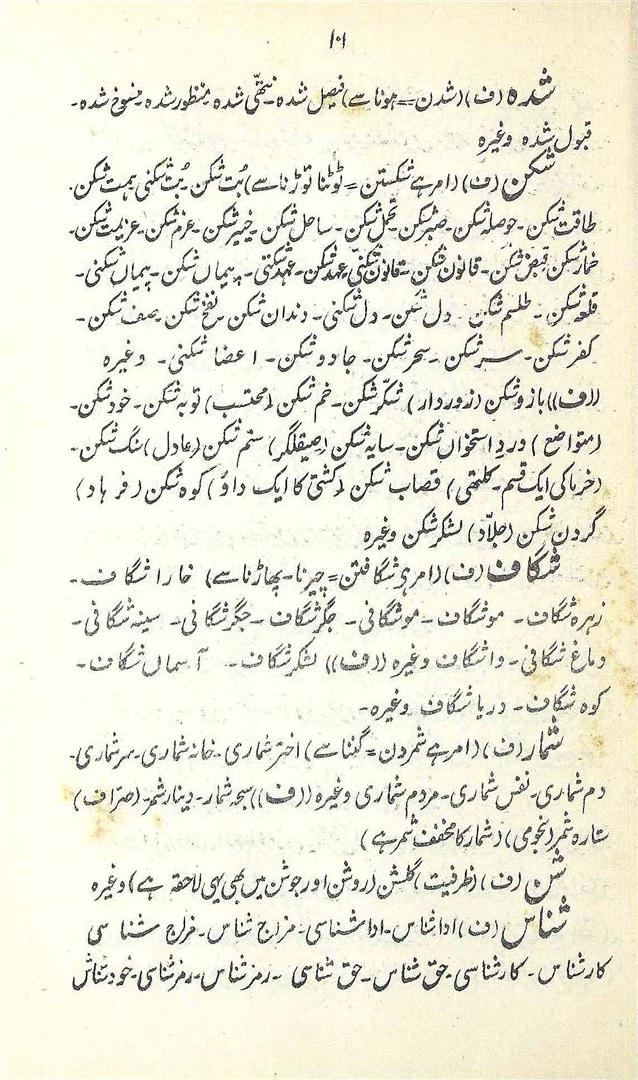 ۱۰۱
شدہ (ف) (شدن = ہونا سے) فیصل شدہ۔ نتھّی شدہ۔ منظور شدہ۔ منسوخ شدہ۔
قبول شدہ وغیرہ
شکن (ف) (امر ہے شکستن = ٹوٹنا توڑنا سے) بُت شکن۔ بُت شکنی ہمت شکن۔
طاقت شکن۔ حوصلہ شکن۔ صبر شکن۔ تحمل شکن۔ ساحل شکن۔ خیبر شکن۔ عزم شکن۔ عزیمت شکن۔
خمار شکن۔ قبض شکن۔ قانون شکن۔ قانون شکنی۔ عہد شکن۔ عہد شکنی۔ پیماں شکن۔ پیماں شکنی۔
قلعہ شکن۔ طلسم شکن۔ دل شکن۔ دل شکنی۔ دندان شکن۔ نفخ شکن۔ صف شکن۔
کفر شکن۔ سر شکن۔ سحر شکن۔ جادو شکن۔ اعضا شکنی۔ وغیرہ
((ف)) بازو شکن (زوردار) شکّر شکن۔ خم شکن (محتسب) توبہ شکن۔ خود شکن۔
(متواضع) دردِ استخواں شکن۔ سایہ شکن (صیقلگر) ستم شکن (عادل) سنگ شکن۔
(خرما کی ایک قسم۔ کلتھی) قصاب شکن (کشتی کا ایک داؤ) کوہ شکن (فرہاد)
گردن شکن (جلّاد) لشکر شکن وغیرہ
شگاف (ف) (امر ہے شگافتن = چیرنا۔ پھاڑنا سے) خارا شگاف۔
زہرہ شگاف۔ مو شگاف۔ مو شگافی۔ جگر شگاف۔ جگر شگافی۔ سینہ شگافی۔
دماغ شگافی۔ وا شگاف وغیرہ ((ف)) لشکر شگاف۔ آسماں شگاف۔
کوہ شگاف۔ دریا شگاف وغیرہ۔
شمار (ف) (امر ہے شمردن = گننا سے) اختر شماری۔ خانہ شماری۔ سر شماری۔
دم شماری۔ نفس شماری۔ مردم شماری وغیرہ ((ف)) سبحہ شمار۔ دینار شمر۔ (صرّاف)
ستارہ شمر (نجومی) (شمار کا مخفف شمر ہے)
شن (ف) (ظرفیت) گلشن (روشن اور جوشن میں بھی یہی لاحقہ ہے) وغیرہ
شناس (ف) ادا شناس۔ ادا شناسی۔ مزاج شناس۔ مزاج شناسی
کار شناس۔ کار شناسی۔ حق شناس۔ حق شناسی۔ رمز شناس۔ رمز شناسی۔ خود شناس